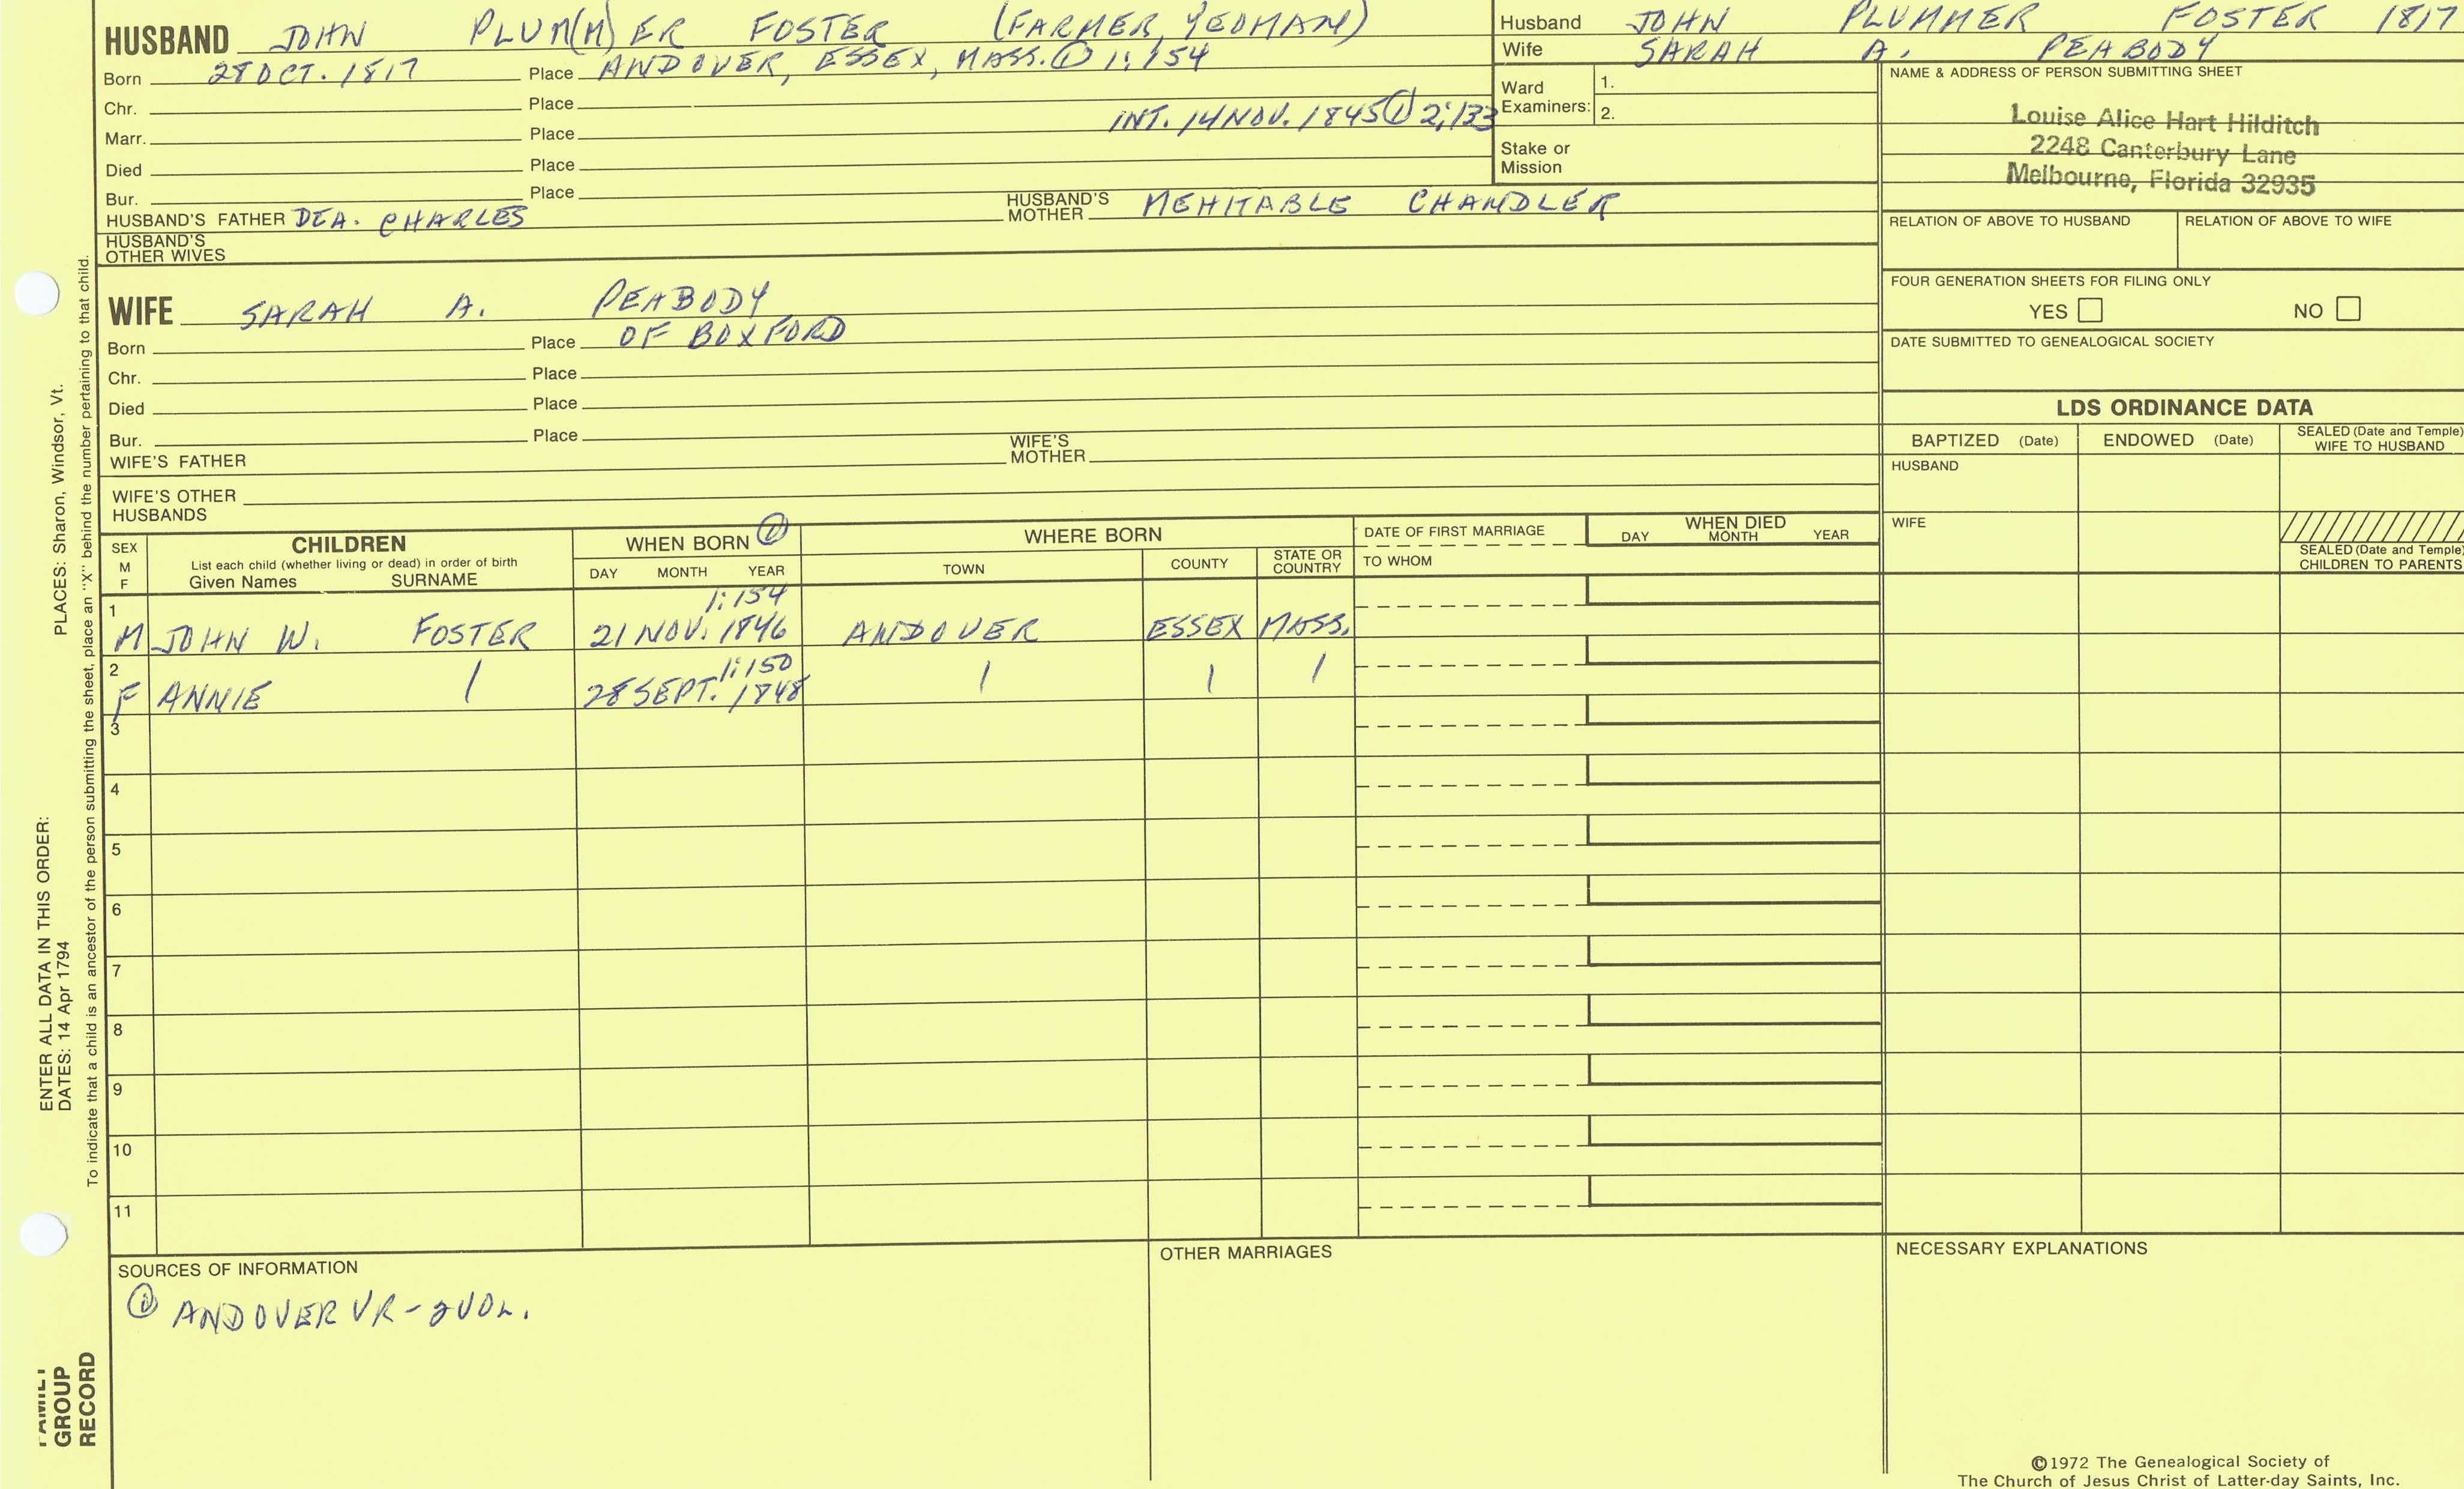 HUSBAND JOHN PLUM(M)ER FOSTER (FARMER, YEOMAN)
Born 28 OCT. 1817 Place ANDOVER, ESSEX, MASS. ① 1:154
Chr. Place
Marr. Place INT. 14 NOV. 1845 ① 2:133
Died Place
Bur. Place
HUSBAND'S FATHER DEA. CHARLES HUSBAND'S MOTHER MEHITABLE CHANDLER
HUSBAND'S OTHER WIVES
WIFE SARAH A. PEABODY
Born Place OF BOXFORD
Chr. Place
Died Place
Bur. Place
WIFE'S FATHER WIFE'S MOTHER
WIFE'S OTHER HUSBANDS
Husband JOHN PLUMMER FOSTER 1817
Wife SARAH A. PEABODY
Ward Examiners: 1.
2.
Stake or Mission
NAME & ADDRESS OF PERSON SUBMITTING SHEET
Louise Alice Hart Hilditch
2248 Canterbury Lane
Melbourne, Florida 32935
RELATION OF ABOVE TO HUSBAND RELATION OF ABOVE TO WIFE
FOUR GENERATION SHEETS FOR FILING ONLY
YES NO
DATE SUBMITTED TO GENEALOGICAL SOCIETY
LDS ORDINANCE DATA
BAPTIZED (Date) ENDOWED (Date) SEALED (Date and Temple) WIFE TO HUSBAND
HUSBAND
WIFE
SEALED (Date and Temple) CHILDREN TO PARENTS
SEX M F CHILDREN WHEN BORN ① WHERE BORN DATE OF FIRST MARRIAGE WHEN DIED
List each child (whether living or dead) in order of birth
Given Names SURNAME DAY MONTH YEAR TOWN COUNTY STATE OR COUNTRY TO WHOM DAY MONTH YEAR
1 1:154
M JOHN W. FOSTER 21 NOV. 1846 ANDOVER ESSEX MASS.
2 1:150
F ANNIE / 28 SEPT. 1848 / / /
3
4
5
6
7
8
9
10
11
SOURCES OF INFORMATION
① ANDOVER VR - 2 VOL.
OTHER MARRIAGES
NECESSARY EXPLANATIONS
©1972 The Genealogical Society of
The Church of Jesus Christ of Latter-day Saints, Inc.
ENTER ALL DATA IN THIS ORDER:
DATES: 14 Apr 1794 PLACES: Sharon, Windsor, Vt.
To indicate that a child is an ancestor of the person submitting the sheet, place an "X" behind the number pertaining to that child.
FAMILY
GROUP
RECORD